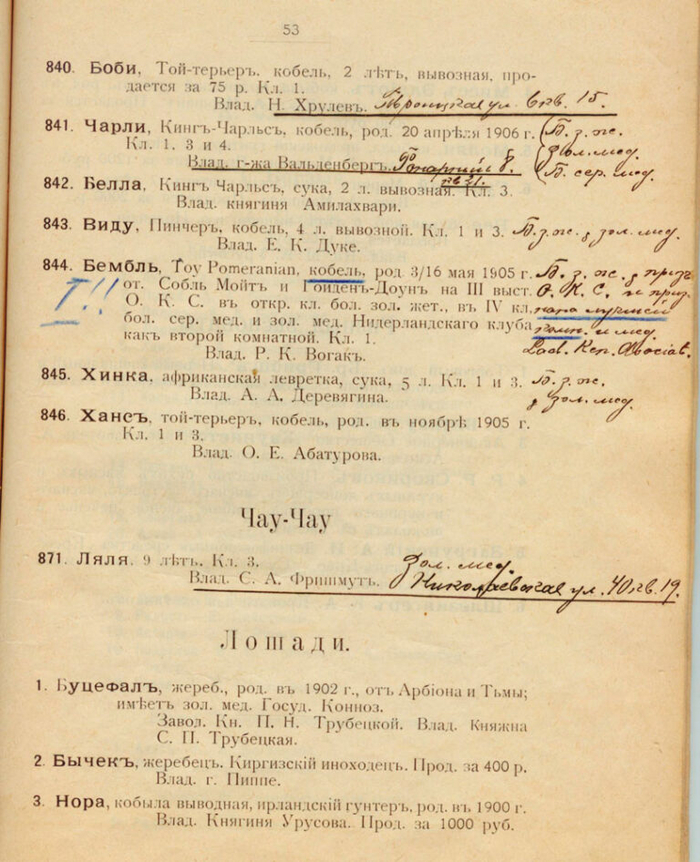 53
840. Боби, Той-терьеръ, кобель, 2 лѣтъ, вывозная, про-
дается за 75 р. Кл. 1.
Влад. Н. Хрулевъ. Троицкая ул. 6 кв. 15.
841. Чарли, Кингъ-Чарльсъ, кобель, род. 20 апрѣля 1906 г. Б. з. ж.
Кл. 1, 3 и 4. зол. мед.
Влад. г-жа Вальденбергъ. 8. Б. сер. мед.
кв 21.
842. Белла, Кингъ Чарльсъ, сука, 2 л. вывозная. Кл. 3.
Влад. княгиня Амилахвари.
843. Виду, Пинчеръ, кобель, 4 л. вывозной. Кл. 1 и 3. Б. з. ж. зол. мед.
Влад. Е. К. Дуке.
844. Бембль, Toy Pomeranian, кобель, род. 3/16 мая 1905 г. Б. з. ж. приз
I!! от. Собль Мойтъ и Гойденъ-Доунъ на III выст. О. К. С. и приз.
О. К. С. въ откр. кл. бол. зол. жет., въ IV кл. пара
бол. сер. мед. и зол. мед. Нидерландскаго клуба комн. и мед.
какъ второй комнатной. Кл. 1. Lad. Ken.
Влад. Р. К. Вогакъ.
845. Хинка, африканская левретка, сука, 5 л. Кл. 1 и 3. Б. з. ж.
Влад. А. А. Деревягина. зол. мед.
846. Хансъ, той-терьеръ, кобель, род. въ ноябрѣ 1905 г.
Кл. 1 и 3.
Влад. О. Е. Абатурова.
Чау-Чау
871. Ляля, 9 лѣтъ. Кл. 3. зол. мед.
Влад. С. А. Фришмутъ. Николаевская ул. 40 кв. 19.
Лошади.
1. Буцефалъ, жереб., род. въ 1902 г., отъ Арбіона и Тьмы;
имѣетъ зол. мед. Госуд. Конноз.
Завол. Кн. П. Н. Трубецкой. Влад. Княжна
С. П. Трубецкая.
2. Бычекъ, жеребецъ. Киргизскій иноходецъ. Прод. за 400 р.
Влад. г. Пиппе.
3. Нора, кобыла выводная, ирландскій гунтеръ, род. въ 1900 г.
Влад. Княгиня Урусова. Прод. за 1000 руб.